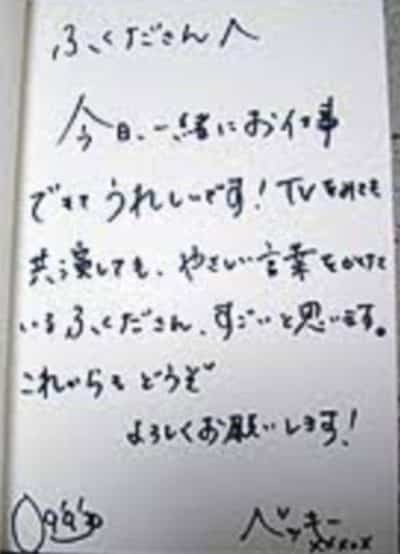 ふくださんへ
今日、一緒にお仕事
できてうれしいです！TVをみても
共演しても、やさしい言葉をかけて
いるふくださん、すごいと思います。
これからもどうぞ
よろしくお願いします！
ベッキー